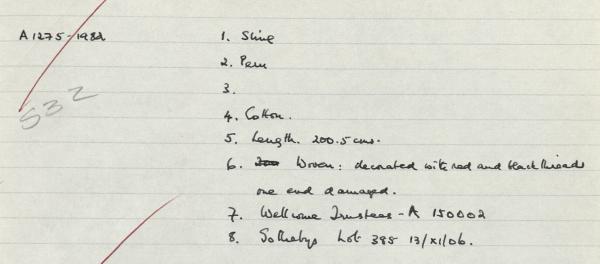 A1275-1982
532
1. Sling
2. Peru
3.
4. Cotton.
5. Length. 200.5 cms.
6. Woven: decorated with red and black threads
one end damaged.
7. Wellcome Trustees - A 150002
8. Sothebys Lot 395 13/XI/06.